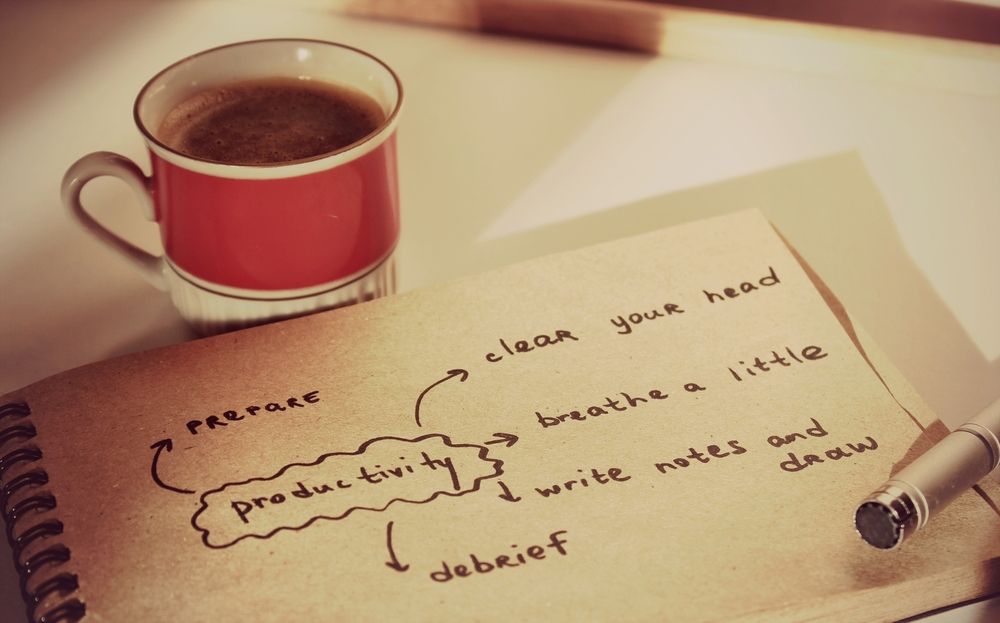 clear your head
prepare
breathe a little
productivity
write notes and
draw
debrief